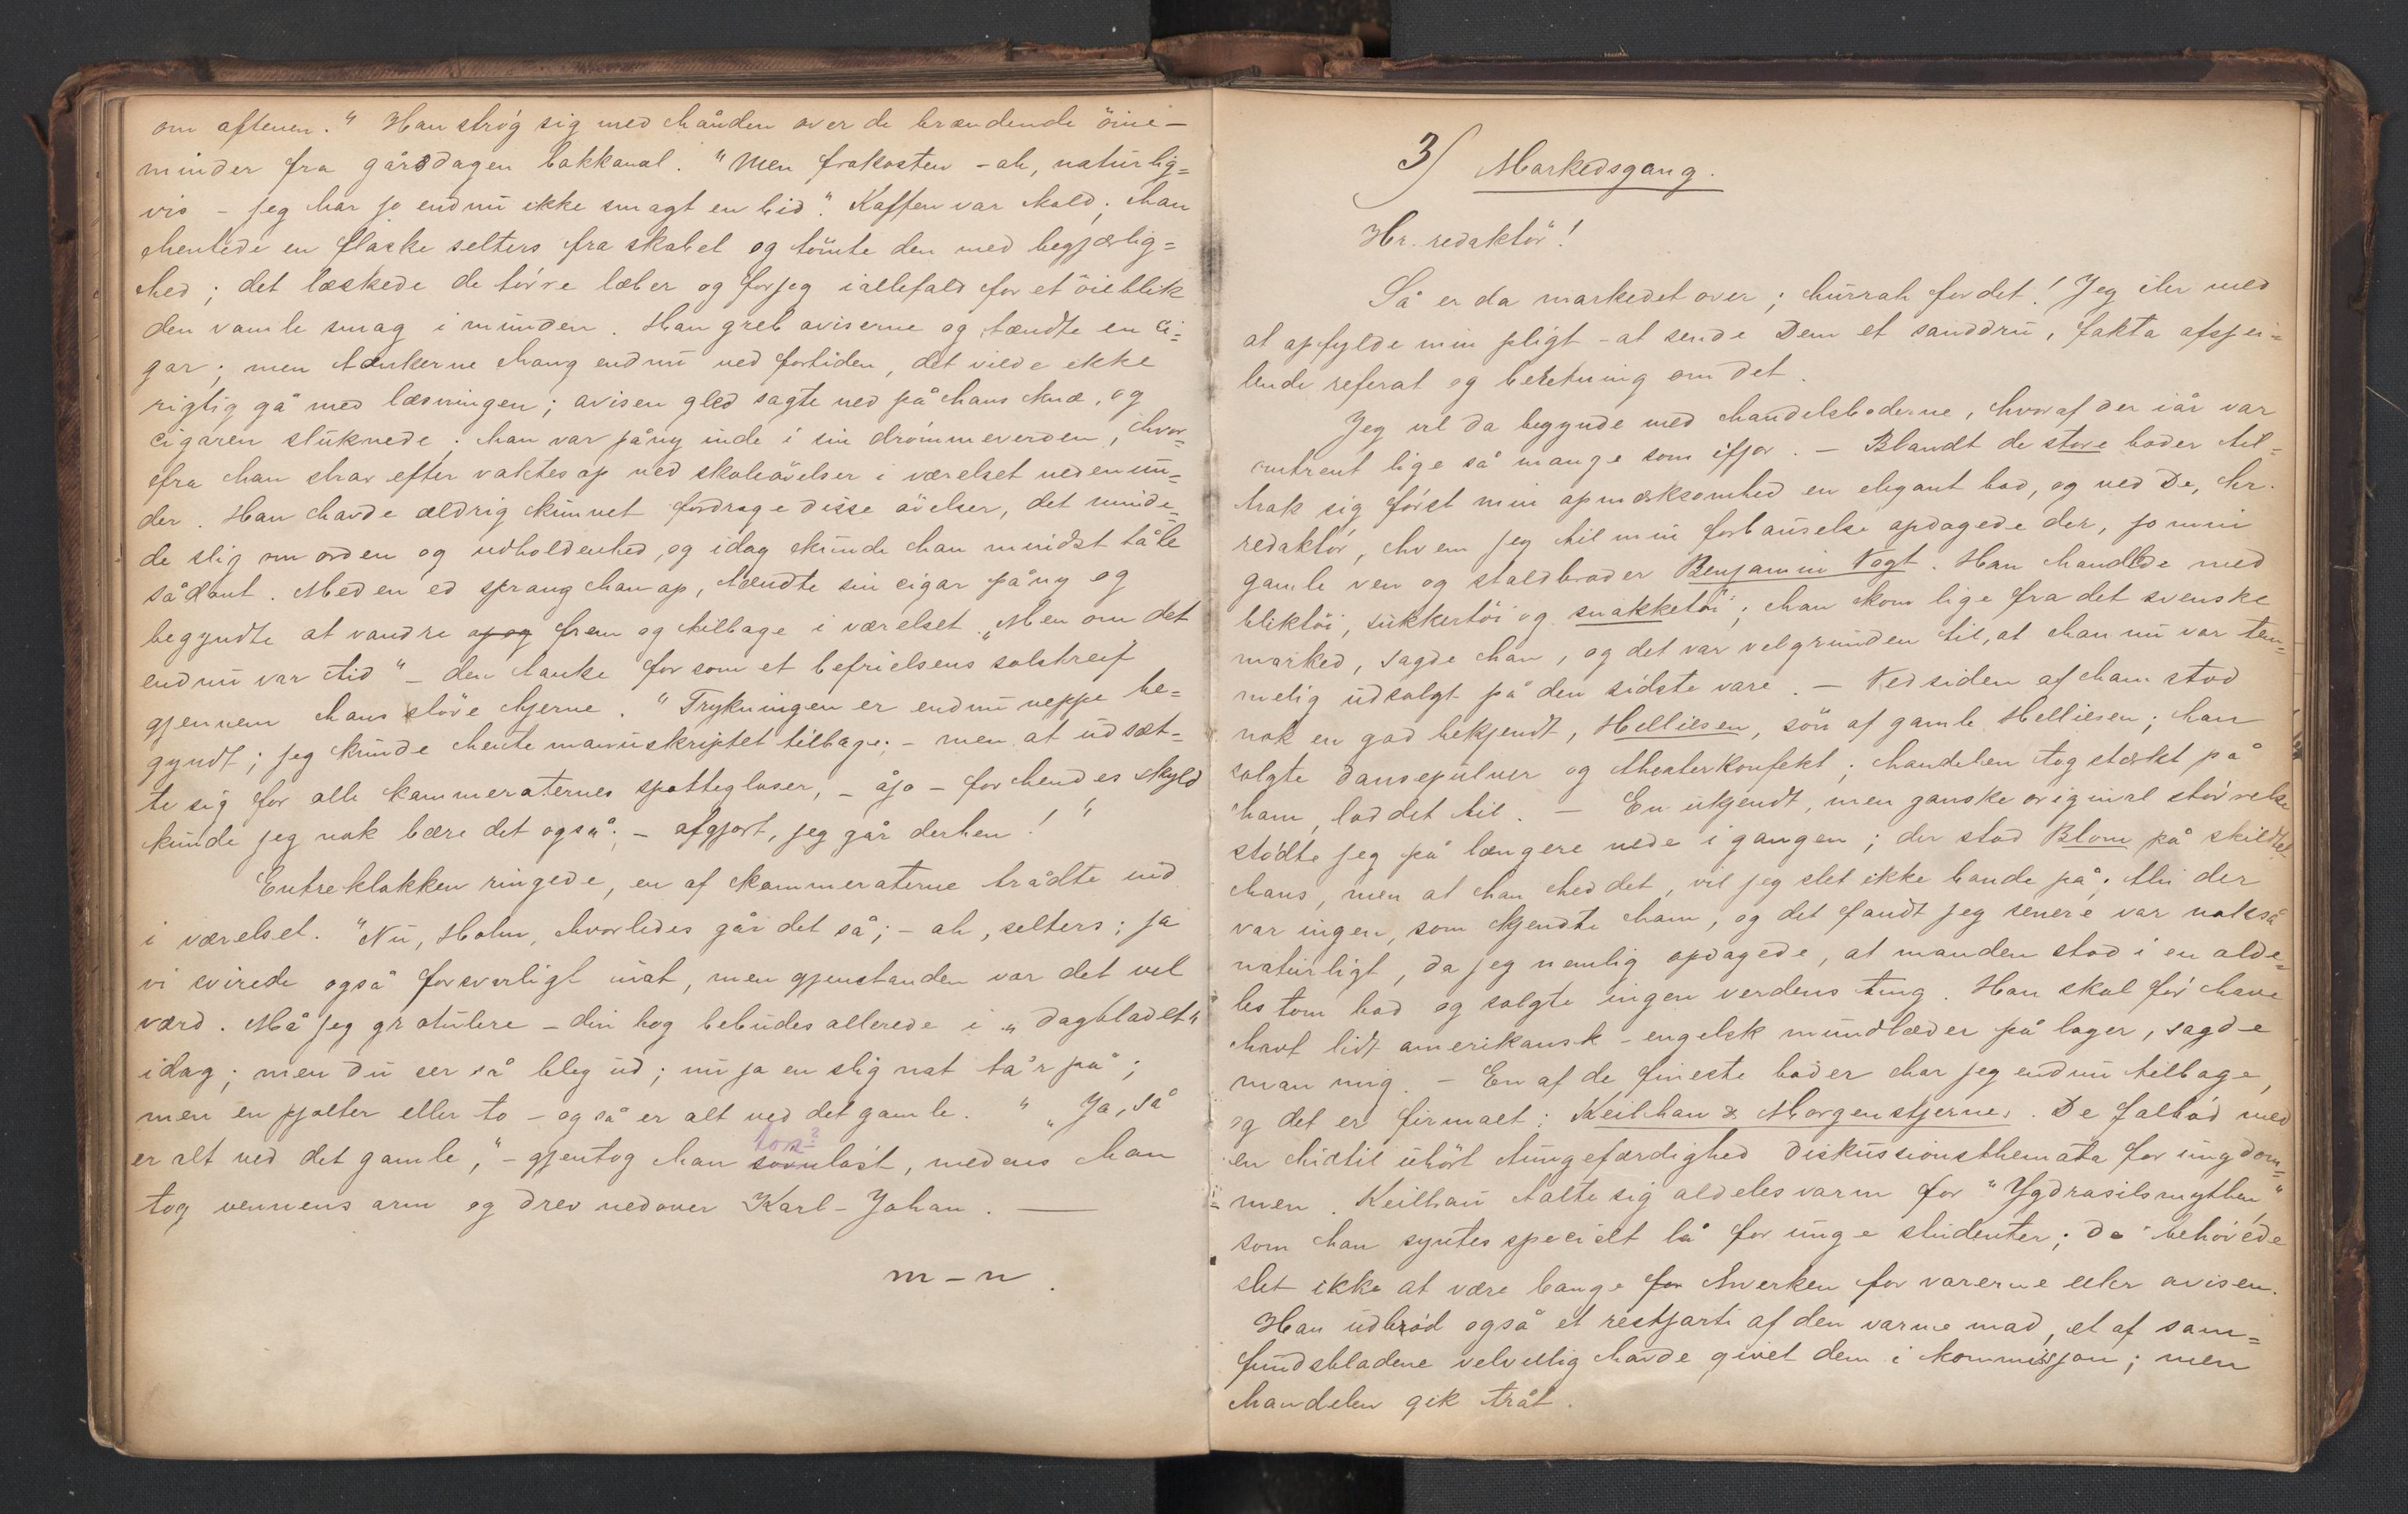 om aftenen." Han strøg sig med hånden over de brændende öine –
minder fra gårsdagen bakkanal. "Men frokosten – ah, naturlig=
vis – jeg har jo endnu ikke smagt en bid". Kaffen var kold; han
hentede en flaske selters fra skabet og tömte den med begjærlig=
hed; det læskede de tørre læber og forjog iallefald for et öieblik
den vamle smag i munden. Han greb aviserne og tændte en ci=
gar; men tankerne hang endnu ved fortiden, det vilde ikke
rigtig gå med læsningen; avisen gled sagte ned på hans knæ, og
cigaren sluknede; han var påny inde i sin drømmeverden, hvor=
fra han strax efter vaktes op ved skalaövelser i værelset nedenun=
der. Han havde aldrig kunnet fordrage disse övelser, det minde=
de slig om orden og udholdenhed, og idag kunde han mindst tåle
sådant. Med en ed sprang han op, tændte sin cigar påny og
begyndte at vandre op og frem og tilbage i værelset. "Men om det
endnu var tid" – den tanke for som et befrielsens solstreif
gjennem hans slöve hjerne. "Trykningen er endnu neppe be=
gyndt; jeg kunde hente manuskriptet tilbage; – men at udsæt=
te sig for alle kammeraternes spottegloser, – åjo – for hendes skyld
kunde jeg nok bære det også; – afgjort, jeg går derhen!"
Entreklokken ringede, en af kammeraterne trådte ind
i værelset. "Nu, Holm, hvorledes går det så; – ah, selters; ja
vi svirede også forsvarligt inat, men gjenstanden var det vel
værd. Må jeg gratulere – din bog bebudes allerede i "Dagbladet"
idag; men du ser så bleg ud; nu ja en slig nat ta'r på;
men en pjolter eller to – og så er alt ved det gamle." "Ja, så
ton?
er alt ved det gamle," – gjentog han sovnløst, medens han
tog vennens arm og drev nedover Karl-Johan. —
m – n.
3) Markedsgang.
Hr. redaktör!
Så er da markedet over; hurrah for det! Jeg iler med
at opfylde min pligt – at sende Dem et sanddru, fakta afspei=
lende referat og beretning om det.
Jeg vil da begynde med handelsboderne, hvoraf der iår var
omtrent lige så mange som ifjor. – Blandt de store boder til=
trak sig først min opmærksomhed en elegant bod, og ved De, hr.
redaktör, hvem jeg til min forbauselse opdagede der, jo min
gamle ven og staldbroder Benjamin Vogt. Han handlede med
bliktöi, sukkertöi og snakketöi; han kom lige fra det svenske
marked, sagde han, og det var velgrunden til, at han nu var tem=
melig udsolgt på den sidste vare. – Ved siden af ham stod
nok en god bekjendt, Helliesen, sön af gamle Helliesen; han
solgte dansepulver og theaterkonfekt; handelen tog stærkt på
ham, lod det til. – En ukjendt, men ganske original störrelse
stødte jeg på længere nede i gangen; der stod Blom på skildtet
hans, men at han hed det, vil jeg slet ikke bande på; thi der
var ingen, som kjendte ham, og det fandt jeg senere var nokså
naturligt, da jeg nemlig opdagede, at manden stod i en alde=
les tom bod og solgte ingen verdens ting. Han skal för have
havt lidt amerikansk-engelsk mundlæder på lager, sagde
man mig. – En af de fineste boder har jeg endnu tilbage,
og det er firmaet: Keilhau & Morgenstjerne. De falbød med
en hidtil uhört tungefærdighed diskussionsthemata for ungdom=
men. Keilhau talte sig aldeles varm for "Ygdrasilsmythen,"
som han syntes specielt lå for unge studenter; de behövede
slet ikke at være bange for hverken for varerne eller avisen.
Han udbrød også et restparti af den varme mad, et af sam=
fundsbladene velvillig havde givet dem i kommissjon; men
handelen gik tråt.